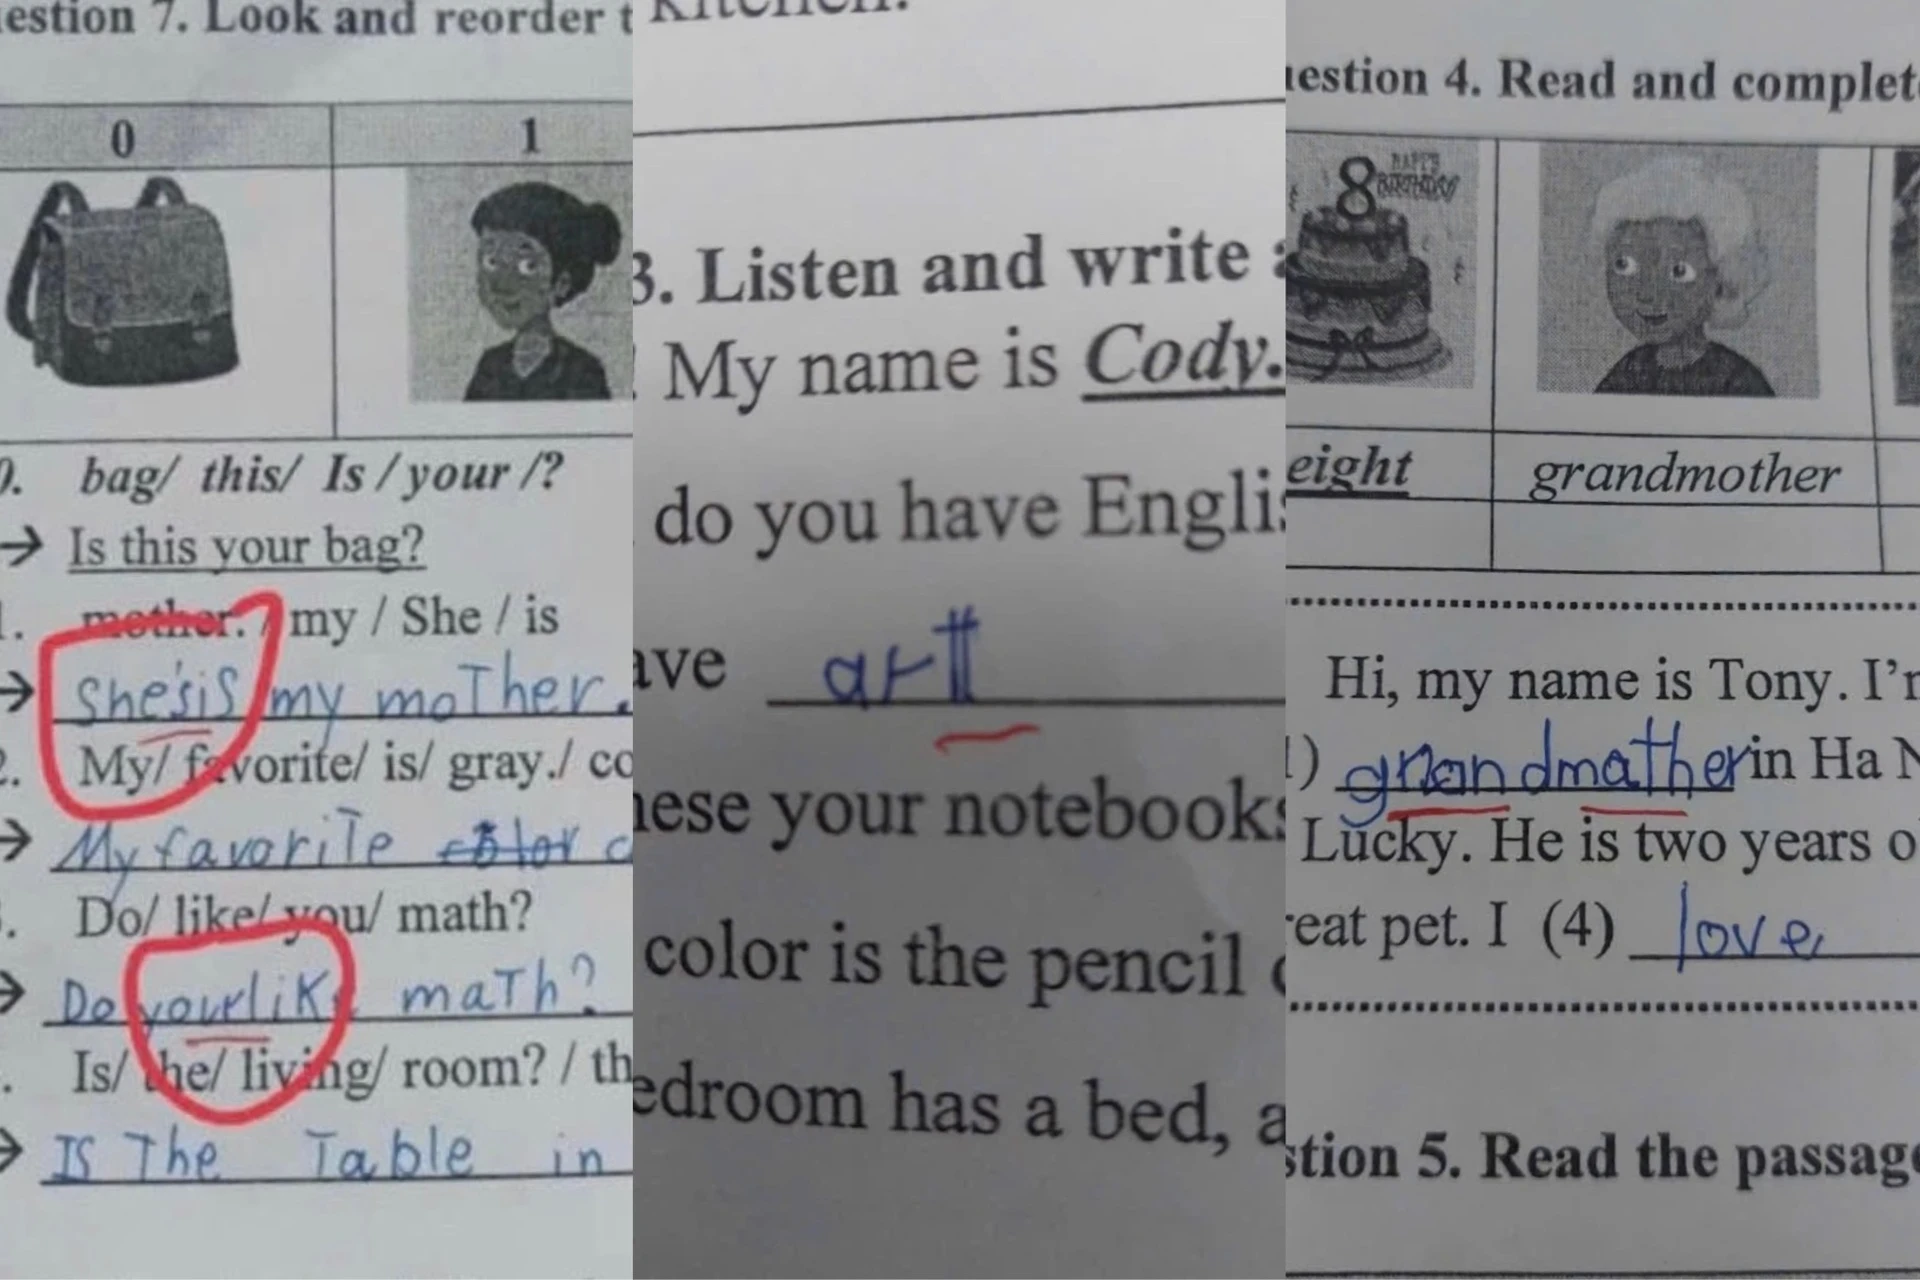 estion 7. Look and reorder t
0 1
bag/ this/ Is / your /?
→ Is this your bag?
mother. / my / She / is
→ She'sis my moTher.
2. My/ favorite/ is/ gray./ co
→ My favoriTe color c
Do/ like/ you/ math?
→ Do yourlik maTh?
Is/ the/ living/ room? / th
→ IS The Table in
kitchen.
3. Listen and write a
My name is Cody.
do you have Englis
ave artt
hese your notebooks
color is the pencil c
edroom has a bed, a
estion 4. Read and complete
8 HAPPY BIRTHDAY
eight grandmother
Hi, my name is Tony. I'm
1) grnandmather in Ha N
Lucky. He is two years o
reat pet. I (4) love
stion 5. Read the passage